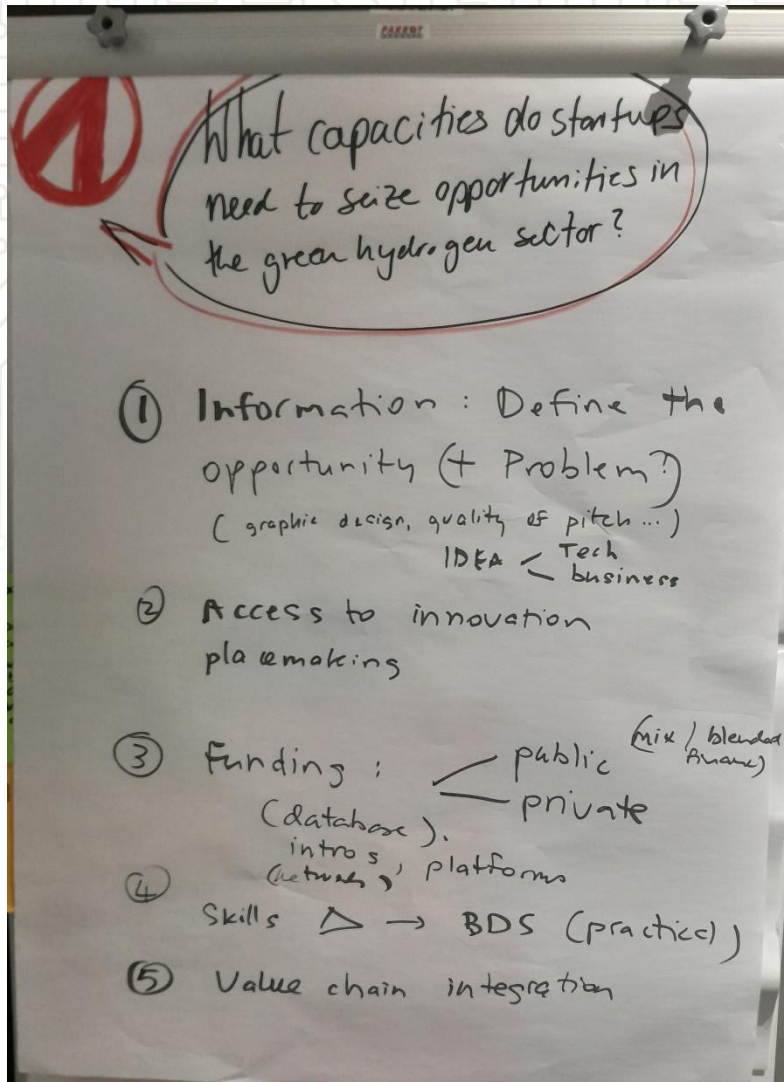 PARROT
What capacities do startups
need to seize opportunities in
the green hydrogen sector?
① Information : Define the
opportunity (+ Problem?)
( graphic design, quality of pitch ... )
IDEA < Tech
business
② Access to innovation
placemaking
③ Funding : public (mix / blended
finance)
private
(database).
intros, platforms
(network)
④
Skills △ → BDS (practical)
⑤ Value chain integration